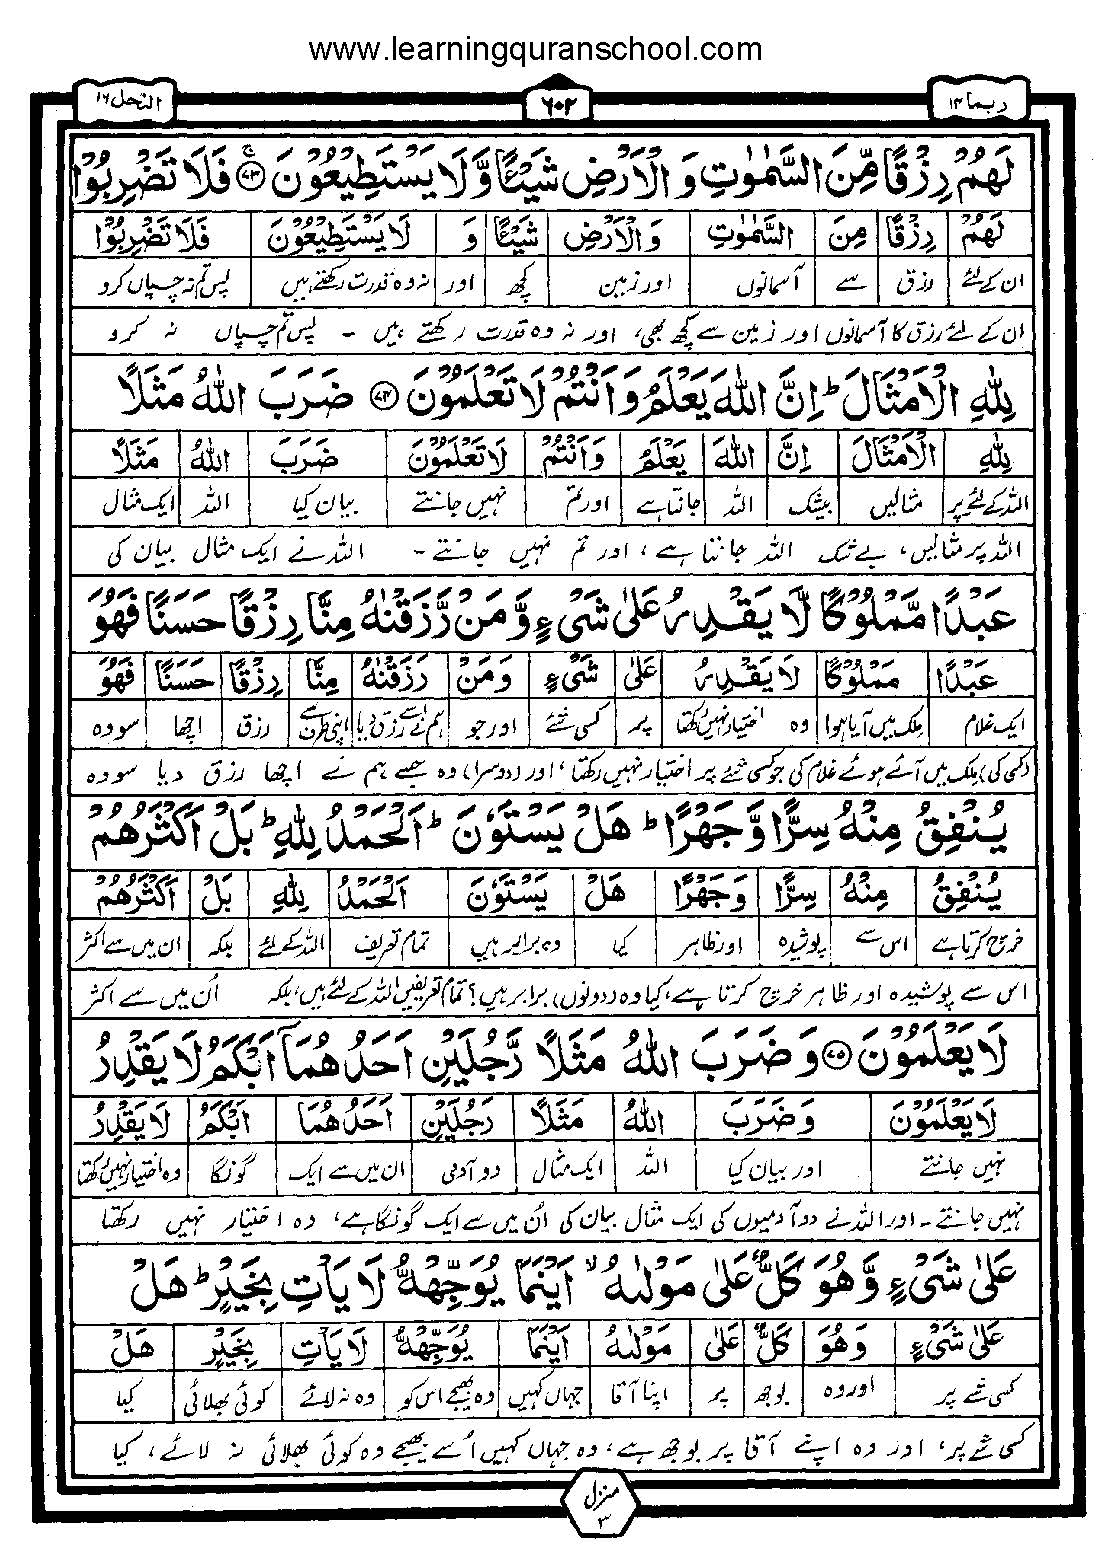 www.learningquranschool.com
ربما ۱۴ ۶۰۲ النحل ۱۶
لَهُمْ رِزْقًا مِّنَ السَّمٰوٰتِ وَ الْاَرْضِ شَيْئًا وَّلَا يَسْتَطِيْعُوْنَ ۚ۷۳ فَلَا تَضْرِبُوْا
لَهُمْ رِزْقًا مِنَ السَّمٰوٰتِ وَالْاَرْضِ شَيْئًا وَ لَا يَسْتَطِيْعُوْنَ فَلَا تَضْرِبُوْا
ان کے لئے رزق سے آسمانوں اور زمین کچھ اور نہ وہ قدرت رکھتے ہیں پس تم نہ چسپاں کرو
ان کے لئے رزق کا آسمانوں اور زمین سے کچھ بھی، اور نہ وہ قدرت رکھتے ہیں ۔ پس تم چسپاں نہ کرو
لِلّٰهِ الْاَمْثَالَ ؕ اِنَّ اللّٰهَ يَعْلَمُ وَ اَنْتُمْ لَا تَعْلَمُوْنَ ۷۴ ضَرَبَ اللّٰهُ مَثَلًا
لِلّٰهِ الْاَمْثَالَ اِنَّ اللّٰهَ يَعْلَمُ وَاَنْتُمْ لَا تَعْلَمُوْنَ ضَرَبَ اللّٰهُ مَثَلًا
اللہ کے لئے پر مثالیں بیشک اللہ جانتا ہے اور تم نہیں جانتے بیان کیا اللہ ایک مثال
اللہ پر مثالیں، بے شک اللہ جانتا ہے، اور تم نہیں جانتے ۔ اللہ نے ایک مثال بیان کی
عَبْدًا مَّمْلُوْكًا لَّا يَقْدِرُ عَلٰى شَىْءٍ وَّمَنْ رَّزَقْنٰهُ مِنَّا رِزْقًا حَسَنًا فَهُوَ
عَبْدًا مَمْلُوْكًا لَا يَقْدِرُ عَلٰى شَىْءٍ وَمَنْ رَزَقْنٰهُ مِنَّا رِزْقًا حَسَنًا فَهُوَ
ایک غلام ملک میں آیا ہوا وہ اختیار نہیں رکھتا پر کسی شئے اور جو ہم نے اسے رزق دیا اپنی طرف سے رزق اچھا سو وہ
(کسی کی) ملک میں آئے ہوئے غلام کی جو کسی شئے پر اختیار نہیں رکھتا، اور (دوسرا) وہ جسے ہم نے اچھا رزق دیا سو وہ
يُنْفِقُ مِنْهُ سِرًّا وَّجَهْرًا ؕ هَلْ يَسْتَوٗنَ ؕ اَلْحَمْدُ لِلّٰهِ ؕ بَلْ اَكْثَرُهُمْ
يُنْفِقُ مِنْهُ سِرًّا وَجَهْرًا هَلْ يَسْتَوٗنَ اَلْحَمْدُ لِلّٰهِ بَلْ اَكْثَرُهُمْ
خرچ کرتا ہے اس سے پوشیدہ اور ظاہر کیا وہ برابر ہیں تمام تعریف اللہ کے لئے بلکہ ان میں سے اکثر
اس سے پوشیدہ اور ظاہر خرچ کرتا ہے، کیا وہ (دونوں) برابر ہیں؟ تمام تعریفیں اللہ کے لئے ہیں، بلکہ اُن میں سے اکثر
لَا يَعْلَمُوْنَ ۷۵ وَ ضَرَبَ اللّٰهُ مَثَلًا رَّجُلَيْنِ اَحَدُهُمَاۤ اَبْكَمُ لَا يَقْدِرُ
لَا يَعْلَمُوْنَ وَضَرَبَ اللّٰهُ مَثَلًا رَجُلَيْنِ اَحَدُهُمَا اَبْكَمُ لَا يَقْدِرُ
نہیں جانتے اور بیان کیا اللہ ایک مثال دو آدمی ان میں سے ایک گونگا وہ اختیار نہیں رکھتا
نہیں جانتے ۔ اور اللہ نے دو آدمیوں کی ایک مثال بیان کی اُن میں سے ایک گونگا ہے، وہ اختیار نہیں رکھتا
عَلٰى شَىْءٍ وَّهُوَ كَلٌّ عَلٰى مَوْلٰىهُ ۙ اَيْنَمَا يُوَجِّهْهُّ لَا يَاْتِ بِخَيْرٍ ؕ هَلْ
عَلٰى شَىْءٍ وَهُوَ كَلٌّ عَلٰى مَوْلٰىهُ اَيْنَمَا يُوَجِّهْهُّ لَا يَاْتِ بِخَيْرٍ هَلْ
کسی شے پر اور وہ بوجھ پر اپنا آقا جہاں کہیں وہ بھیجے اس کو وہ نہ لائے کوئی بھلائی کیا
کسی شے پر، اور وہ اپنے آقا پر بوجھ ہے، وہ جہاں کہیں اُسے بھیجے وہ کوئی بھلائی نہ لائے، کیا
منزل ۳